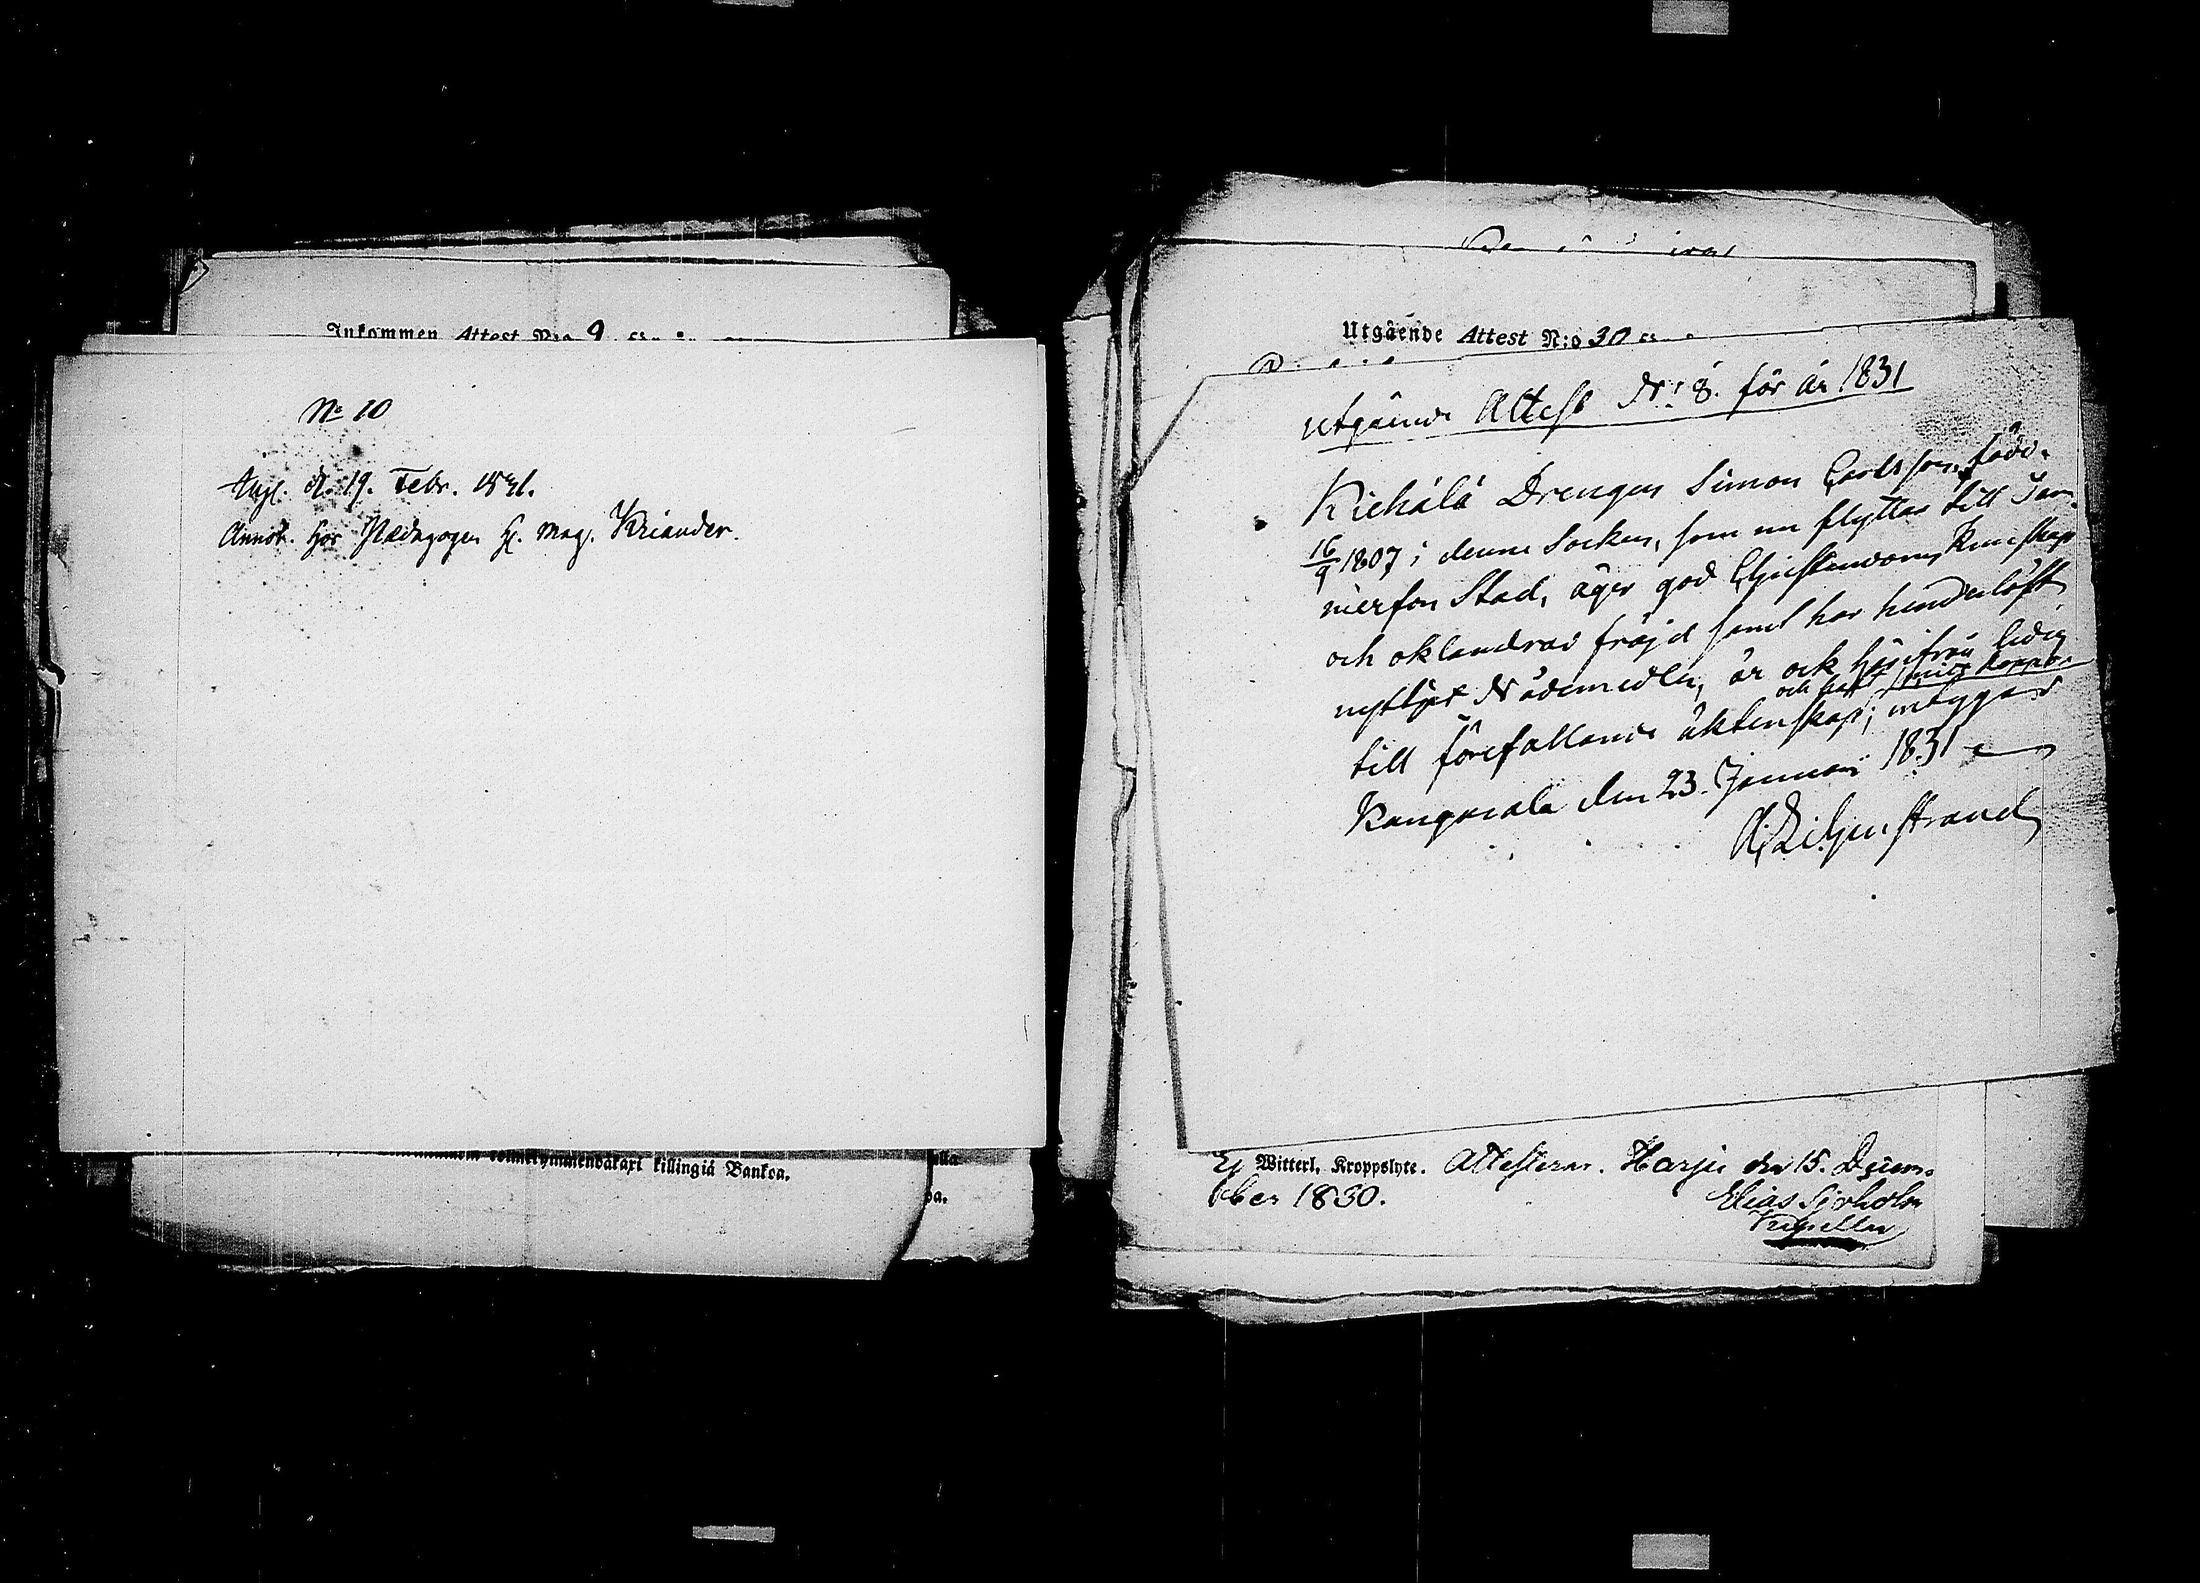 Inkommen Attest N:o 9
No 10
Angl. d. 19. Febr. 1831.
Annot. hos Pædagogen H. Mag. Kriander.
killingiä Bankoa.
Utgående Attest N:o 30
Utgående Attest N: 8. för år 1831
Riehälä Drengen Simon Carlsson, född.
16/9 1807 i denna Socken, som nu flyttar till Tam-
merfors Stad, äger god Christendoms Kunskap
och oklandrad fräjd samt har hinderlöst
nyttjat Nådemedlen, är ock härifrån ledig
och haft smitt koppor
till förefallande äktenskap; intygas
Kangasala den 23. Januari 1831
A. Liljenstrand
Ej Witterl. Kroppslyte. Attesterar. Harju den 15. Decem-
ber 1830.
Elias Sjöholm
Kapellan